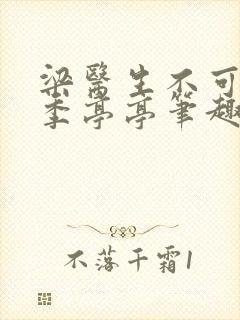 梁醫生不可
季亭亭筆趣
不落千霜1